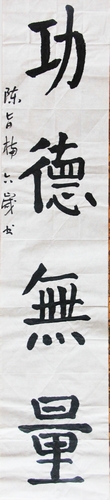 功德無量
陈旨梅六岁书